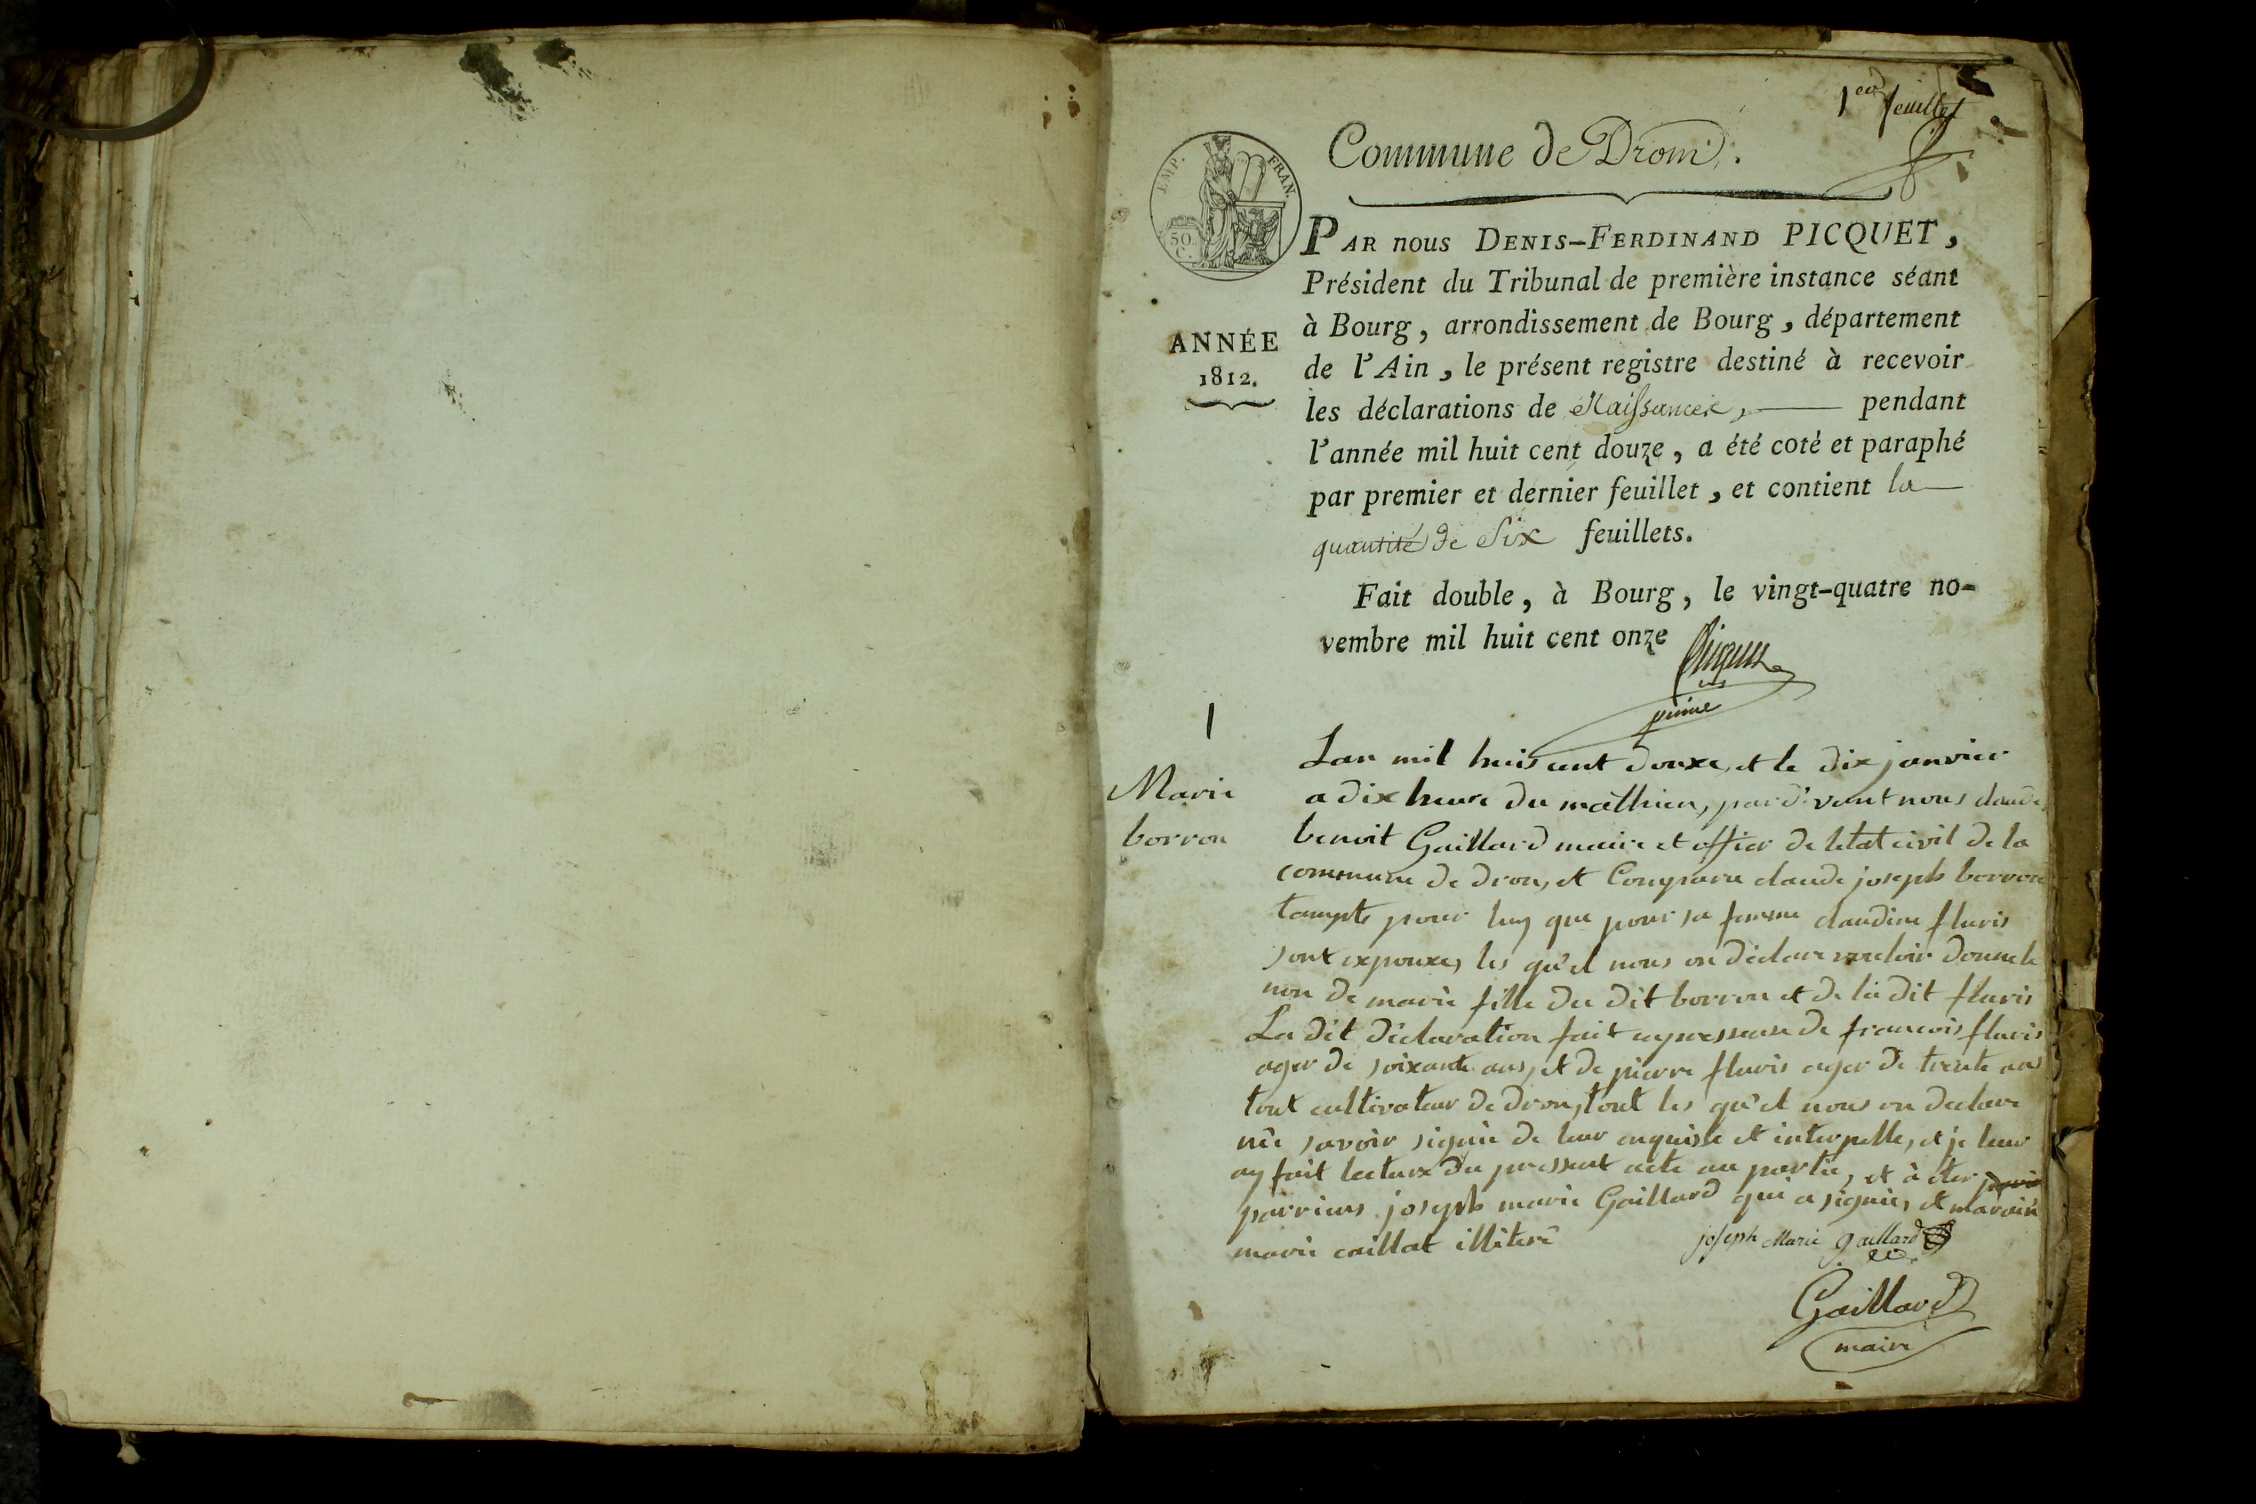 1er feuillet
Commune de Drom.
EMP. FRAN.
50 C.
PAR nous DENIS-FERDINAND PICQUET,
Président du Tribunal de première instance séant
à Bourg, arrondissement de Bourg, département
ANNÉE
1812.
de l'Ain, le présent registre destiné à recevoir
les déclarations de Naissances, pendant
l'année mil huit cent douze, a été coté et paraphé
par premier et dernier feuillet, et contient la
quantité de Six feuillets.
Fait double, à Bourg, le vingt-quatre no-
vembre mil huit cent onze
Picquet
1
Marie
borron
Lan mil huis cent douxe, et le dix janvier
a dix heure du mathien, par d'vant nous claude
benoit Gaillard maire et officr de letat civil de la
commune de dron, et Comparu claude joseph borron
tampts pour luy que pour sa femme claudine fluris
sont expouxe, les qu'el nous on déclare vouloir donne le
non de marie fille du dit borron et de la dit fluris
La dit déclaration fait en pressense de francois fluris
ager de soixante ans, et de pierre fluris ager de trente ans
tout cultivateur de dron, tout les qu'el nous on declare
nêe savoir signie de leur enquiste et interpelle, et je leur
ay fait lecture du pressent acte au partie, et à eter
parriens joseph marie Gaillard qui a signie, et marain
marie caillat illiterê
joseph Marie gaillard
Gaillard
maire